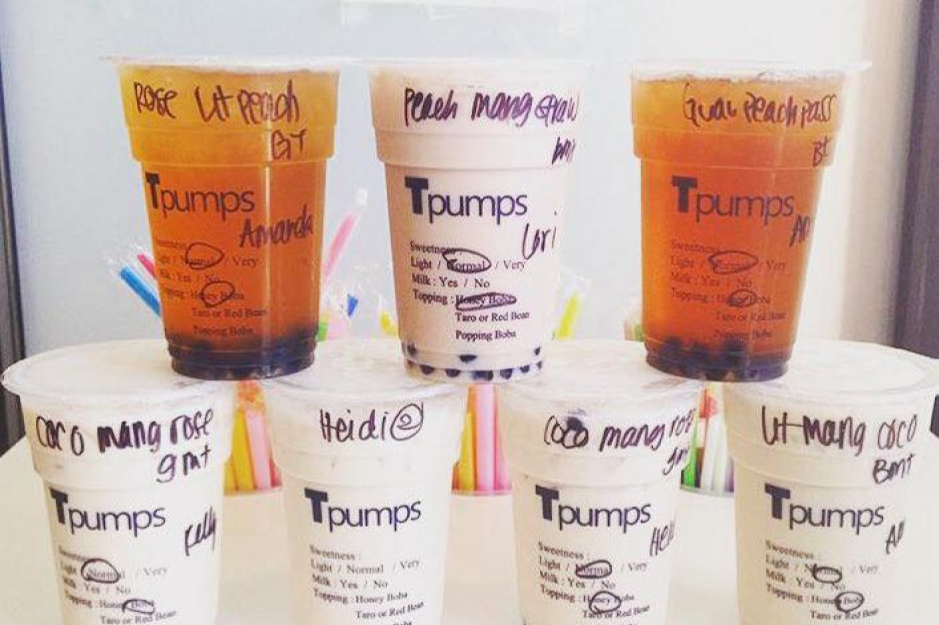 Rose Ut Peach
GT
Tpumps
Amanda
Sweetness
Light / Normal / Very
Milk : Yes / No
Topping : Honey Boba
Taro or Red Bean
Popping Boba
Peach mang straw
bmt
Tpumps
Lori
Sweetness
Light / Normal / Very
Milk : Yes / No
Topping : Honey Boba
Taro or Red Bean
Popping Boba
Guav Peach pass
BT
Tpumps
Sweetness
Light / Normal / Very
Milk : Yes / No
Topping : Honey Boba
Taro or Red Bean
Popping Boba
Coco mang rose
gmt
Tpumps
Kelly
Sweetness :
Light / Normal / Very
Milk : Yes / No
Topping : Honey Boba
Taro or Red Bean
Heidi
Tpumps
Sweetness :
Light / Normal / Very
Milk : Yes / No
Topping : Honey Boba
Taro or Red Bean
Coco mang rose
gmt
Tpumps
Sweetness :
Light / Normal / Very
Milk : Yes / No
Topping : Honey Boba
Taro or Red Bean
Ut mang coco
Bmt
Tpumps
Sweetness :
Light / Normal / Very
Milk : Yes / No
Topping : Honey Boba
Taro or Red Bean